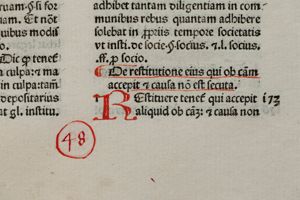 iram.§ i for
. Et nõt
quibus modis
st.
Dic qp tenet̃
in culpa: ⁊ ma
a culpa: ⁊ ma
depositarius
at gl. institu.
adhibet tantam diligentiam in com
munibus rebus quantam adhibere
solebat in ꝓpriis tempore societatis
vt insti. de socie.§ socius. ⁊ .l. socius.
.ff. ꝓ socio.
De restitutione eius qui ob cãm
accepit ⁊ causa nõ est secuta.
Restituere tenet̃ qui accepit i⁊⁊
aliquid ob cãʒ: ⁊ causa non
48